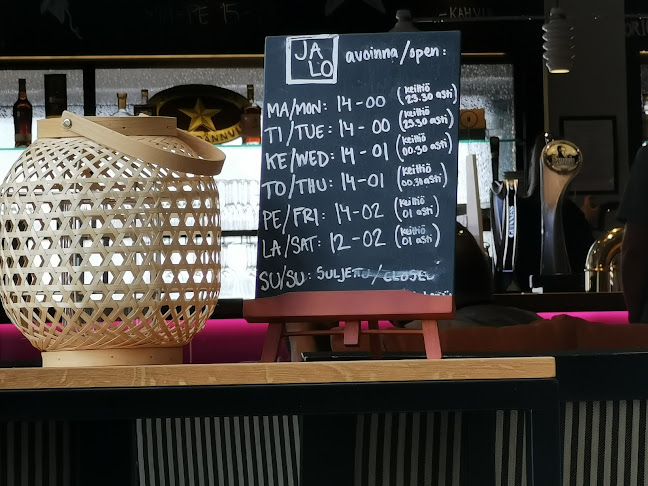 JA
LO
avoinna/open:
MA/MON: 14-00 (keittiö 23.30 asti)
TI/TUE: 14-00 (keittiö 23.30 asti)
KE/WED: 14-01 (keittiö 00.30 asti)
TO/THU: 14-01 (keittiö 00.30 asti)
PE/FRI: 14-02 (keittiö 01 asti)
LA/SAT: 12-02 (keittiö 01 asti)
SU/SU: SULJETTU/CLOSED